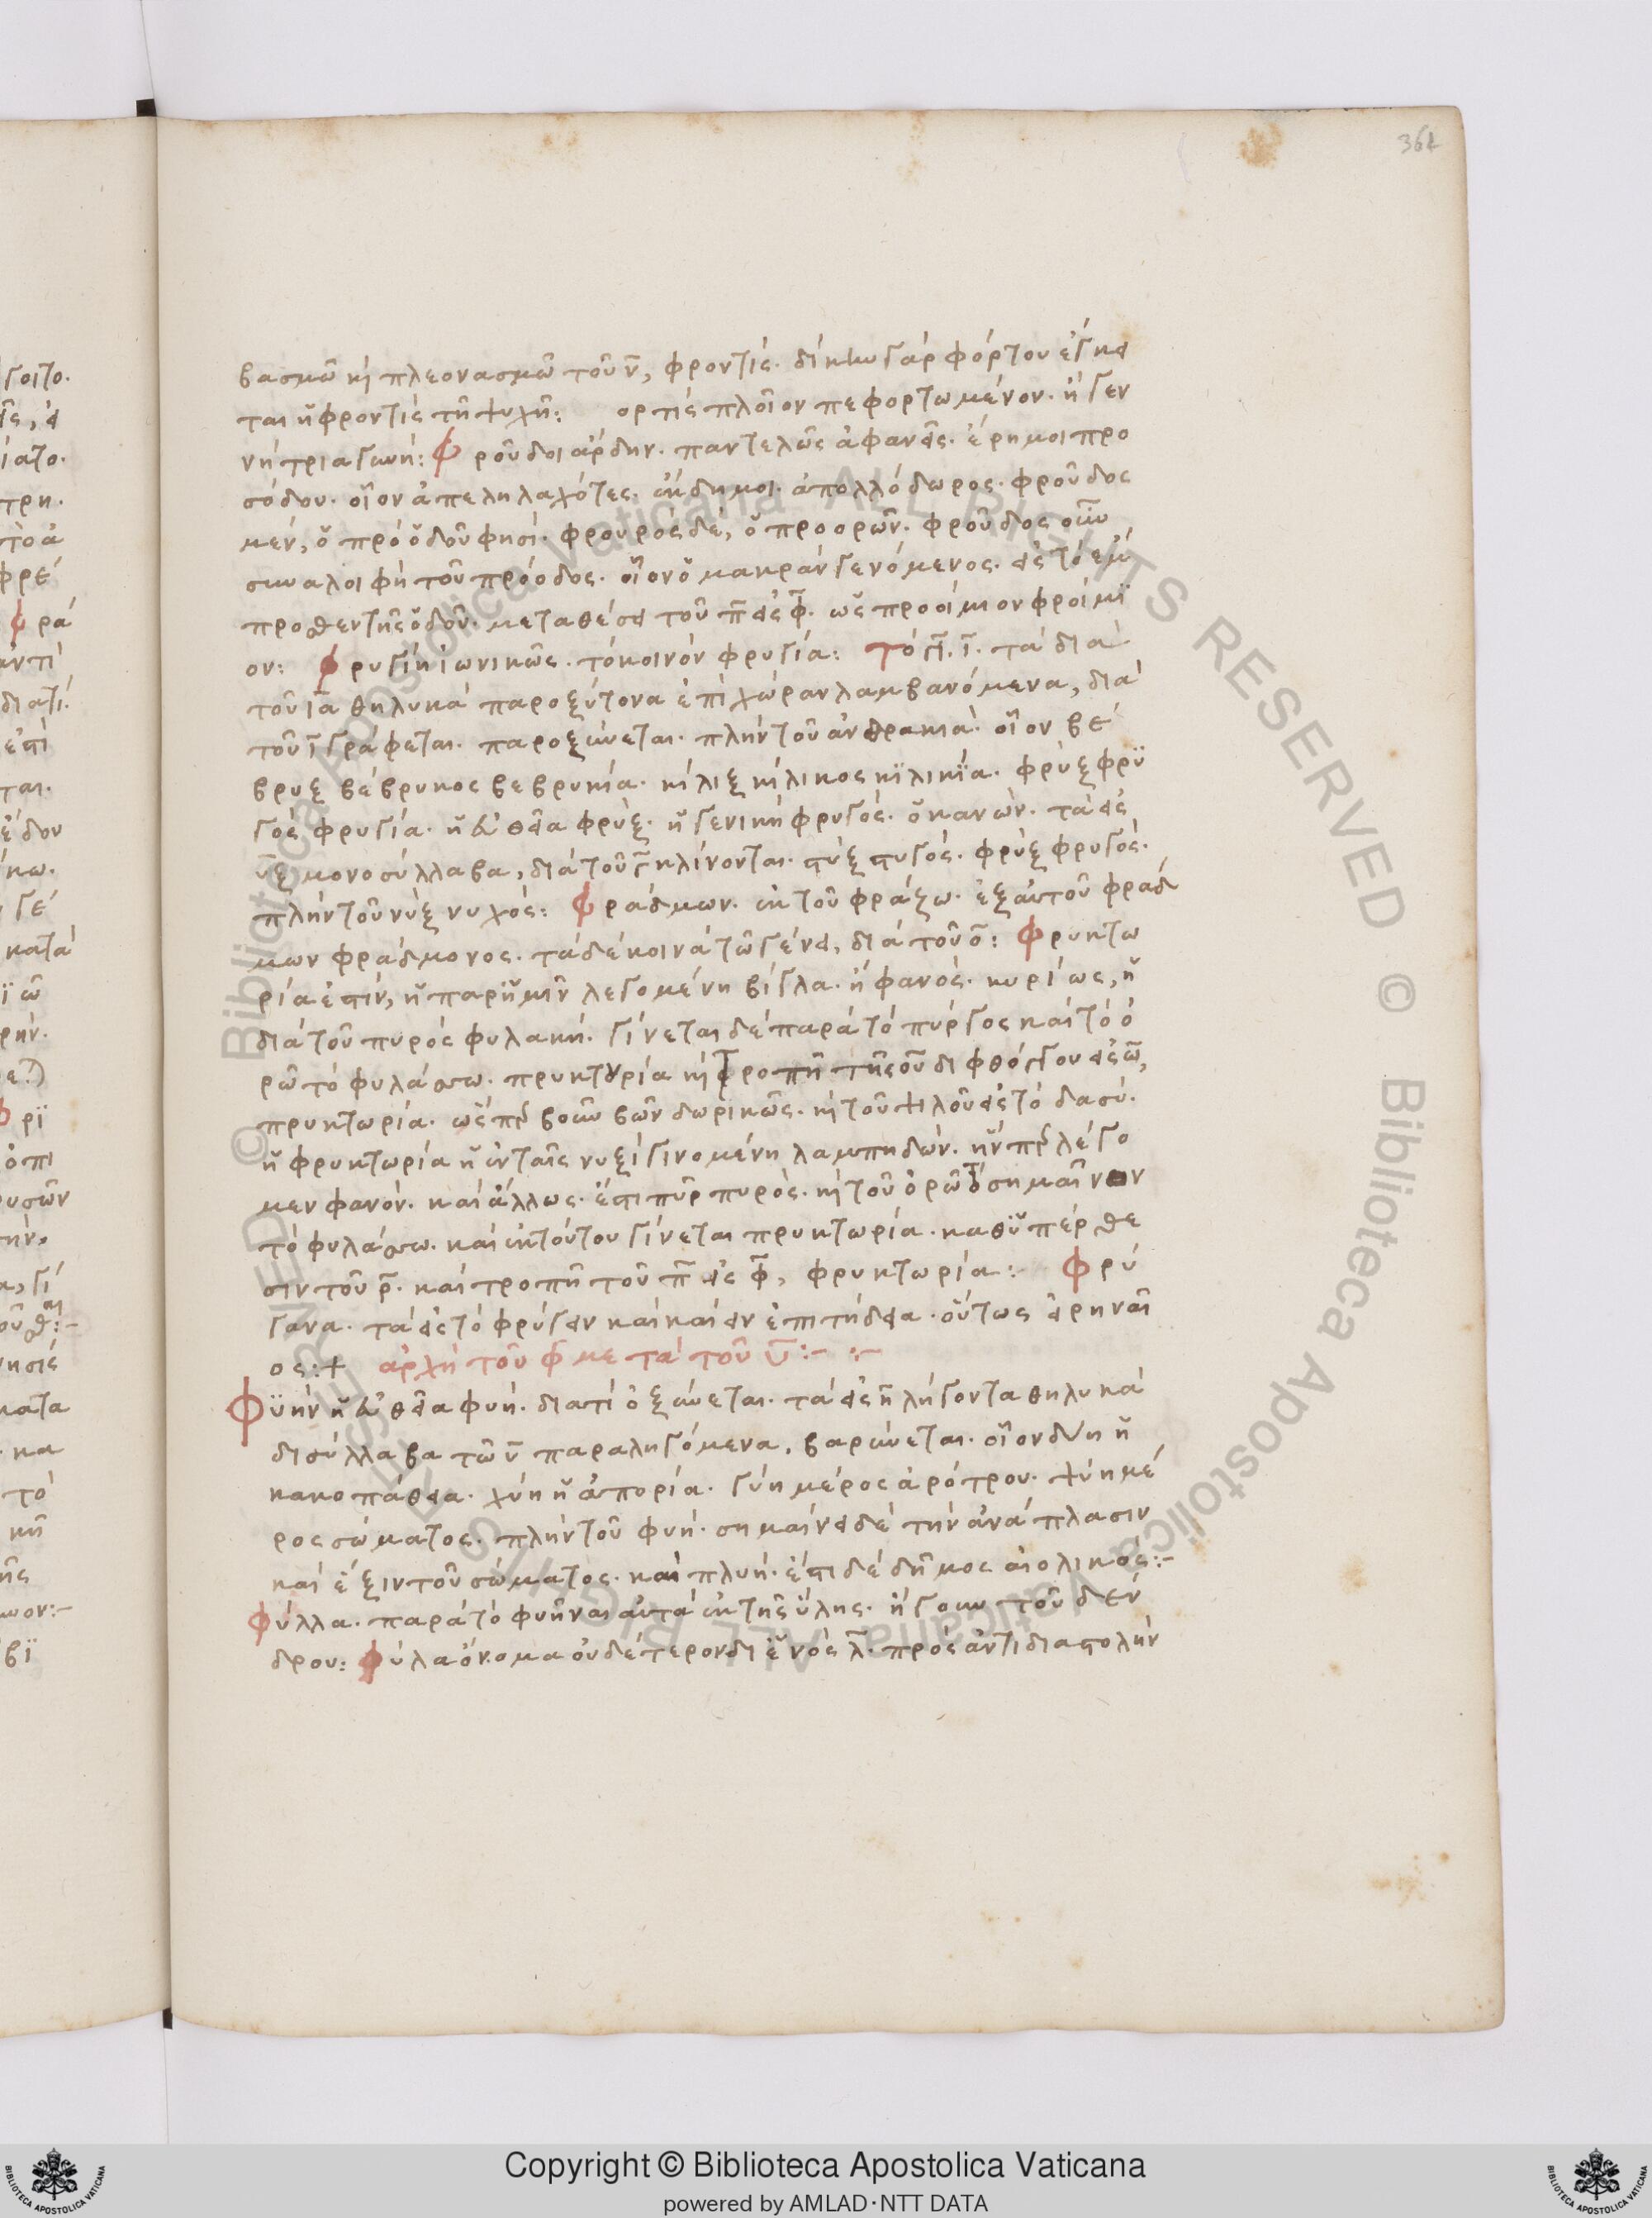 361
βασμῶ κὶ πλεονασμῶ τοῦ ν̄, φροντίς. δίκην γὰρ φόρτου ἔγκει
ται ἡ φροντὶς τῆ ψυχῆ: ορτὶς πλοῖον πεφορτωμένον. ἢ γεν
νήτρια γυνή: Φροῦδοι ἄρδην. παντελῶς ἀφανεῖς. ἔρημοι προ
σόδου. οἷον ἀπεληλαχότες. ἔκδημοι. ἀπολλόδωρος. φροῦδος
μέν, ὁ πρὸ ὁδοῦ φησί. φρουρὸς δέ, ὁ προορῶν. φροῦδος οὖν
συναλοιφὴ τοῦ πρόοδος. οἷον ὁ μακρὰν γενόμενος. εἰς τὸ ἔμ
προσθεν τῆς ὁδοῦ. μεταθέσει τοῦ π̄ εἰς φ̄. ὡς προοίμιον φροίμϊ
ον: Φρυγίη ἰωνικῶς. τὸ κοινὸν φρυγία: Τὸ γῑ. ῑ. τὰ διὰ
τοῦ ῑᾱ θηλυκὰ παροξύτονα ἐπὶ χώραν λαμβανόμενα, διὰ
τοῦ ῑ γράφεται. παροξύνεται. πλὴν τοῦ ἀνθρακιά. οἷον βέ
βρυξ βέβρυκος βεβρυκία. κίλιξ κίλικος κϊλικϊα. φρὺξ φρϋ
γὸς φρυγία. ἡ εὐθεῖα φρύξ. ἡ γενικὴ φρυγός. ὁ κανών. τὰ εἰς
ῡξ μονοσύλλαβα, διὰ τοῦ γ̄ κλίνονται. στὺξ στυγός. φρὺξ φρυγός.
πλὴν τοῦ νὺξ νυχός: Φράδμων. ἐκ τοῦ φράζω. ἐξ αὐτοῦ φραδ
μων φράδμονος. τὰ δὲ κοινὰ τῶ γένει, διὰ τοῦ ο̄: Φρυκτω
ρία ἐστιν, ἡ παρ ἡμῖν λεγομένη βίγλα. ἢ φανός. κυρίως, ἡ
διὰ τοῦ πυρὸς φυλακή. γίνεται δὲ παρὰ τὸ πύργος καὶ τὸ ὁ
ρῶ τὸ φυλάσσω. πρυκτουρία κὶ τροπῆ τῆς οῦ διφθόγγου εἰς ω̄,
πρυκτωρία. ὡς περ βοῦν βῶν δωρικῶς. κὶ τοῦ ψιλοῦ εἰς τὸ δασύ.
ἢ φρυκτωρία ἡ ἐν ταῖς νυξὶ γινομένη λαμπηδών. ἥν περ λέγο
μεν φανόν. καὶ ἄλλως. ἔστι πῦρ πυρός. κὶ τοῦ ὁρῶ τὸ σημαῖνον
τὸ φυλάσσω. καὶ ἐκ τούτου γίνεται πρυκτωρία. καθ ὑπέρθε
σιν τοῦ ρ̄. καὶ τροπῆ τοῦ π̄ εἰς φ̄, φρυκτωρία: Φρύ
γανα. τὰ εἰς τὸ φρύγειν καὶ καίειν ἐπιτήδεια. οὕτως εἰρηναῖ
ος:+ ἀρχὴ τοῦ φ̄ με τὰ τοῦ ῡ:- :-
Φϋὴν ἡ εὐθεῖα φυή. διατί ὀξύνεται. τὰ εἰς η̄ λήγοντα θηλυκὰ
δισύλλαβα τῶ ῡ παραληγόμενα. βαρύνεται. οἷον δύη ἡ
κακοπάθεια. χύη ἡ ἀπορία. γύη μέρος ἀρότρου. ψύη μέ
ρος σώματος. πλὴν τοῦ φυή. σημαίνει δὲ τὴν ἀνάπλασιν
καὶ ἕξιν τοῦ σώματος. καὶ πλυή. ἔστι δὲ δῆμος αἰολικός:-
Φύλλα. παρὰ τὸ φυῆναι αὐτὰ ἐκ τῆς ὕλης. ἤγουν τοῦ δεν
δρου: Φύλα ὄνομα οὐδέτερον δι ἑνὸς λ̄. πρὸς ἀντιδιαστολὴν
Copyright © Biblioteca Apostolica Vaticana
powered by AMLAD·NTT DATA